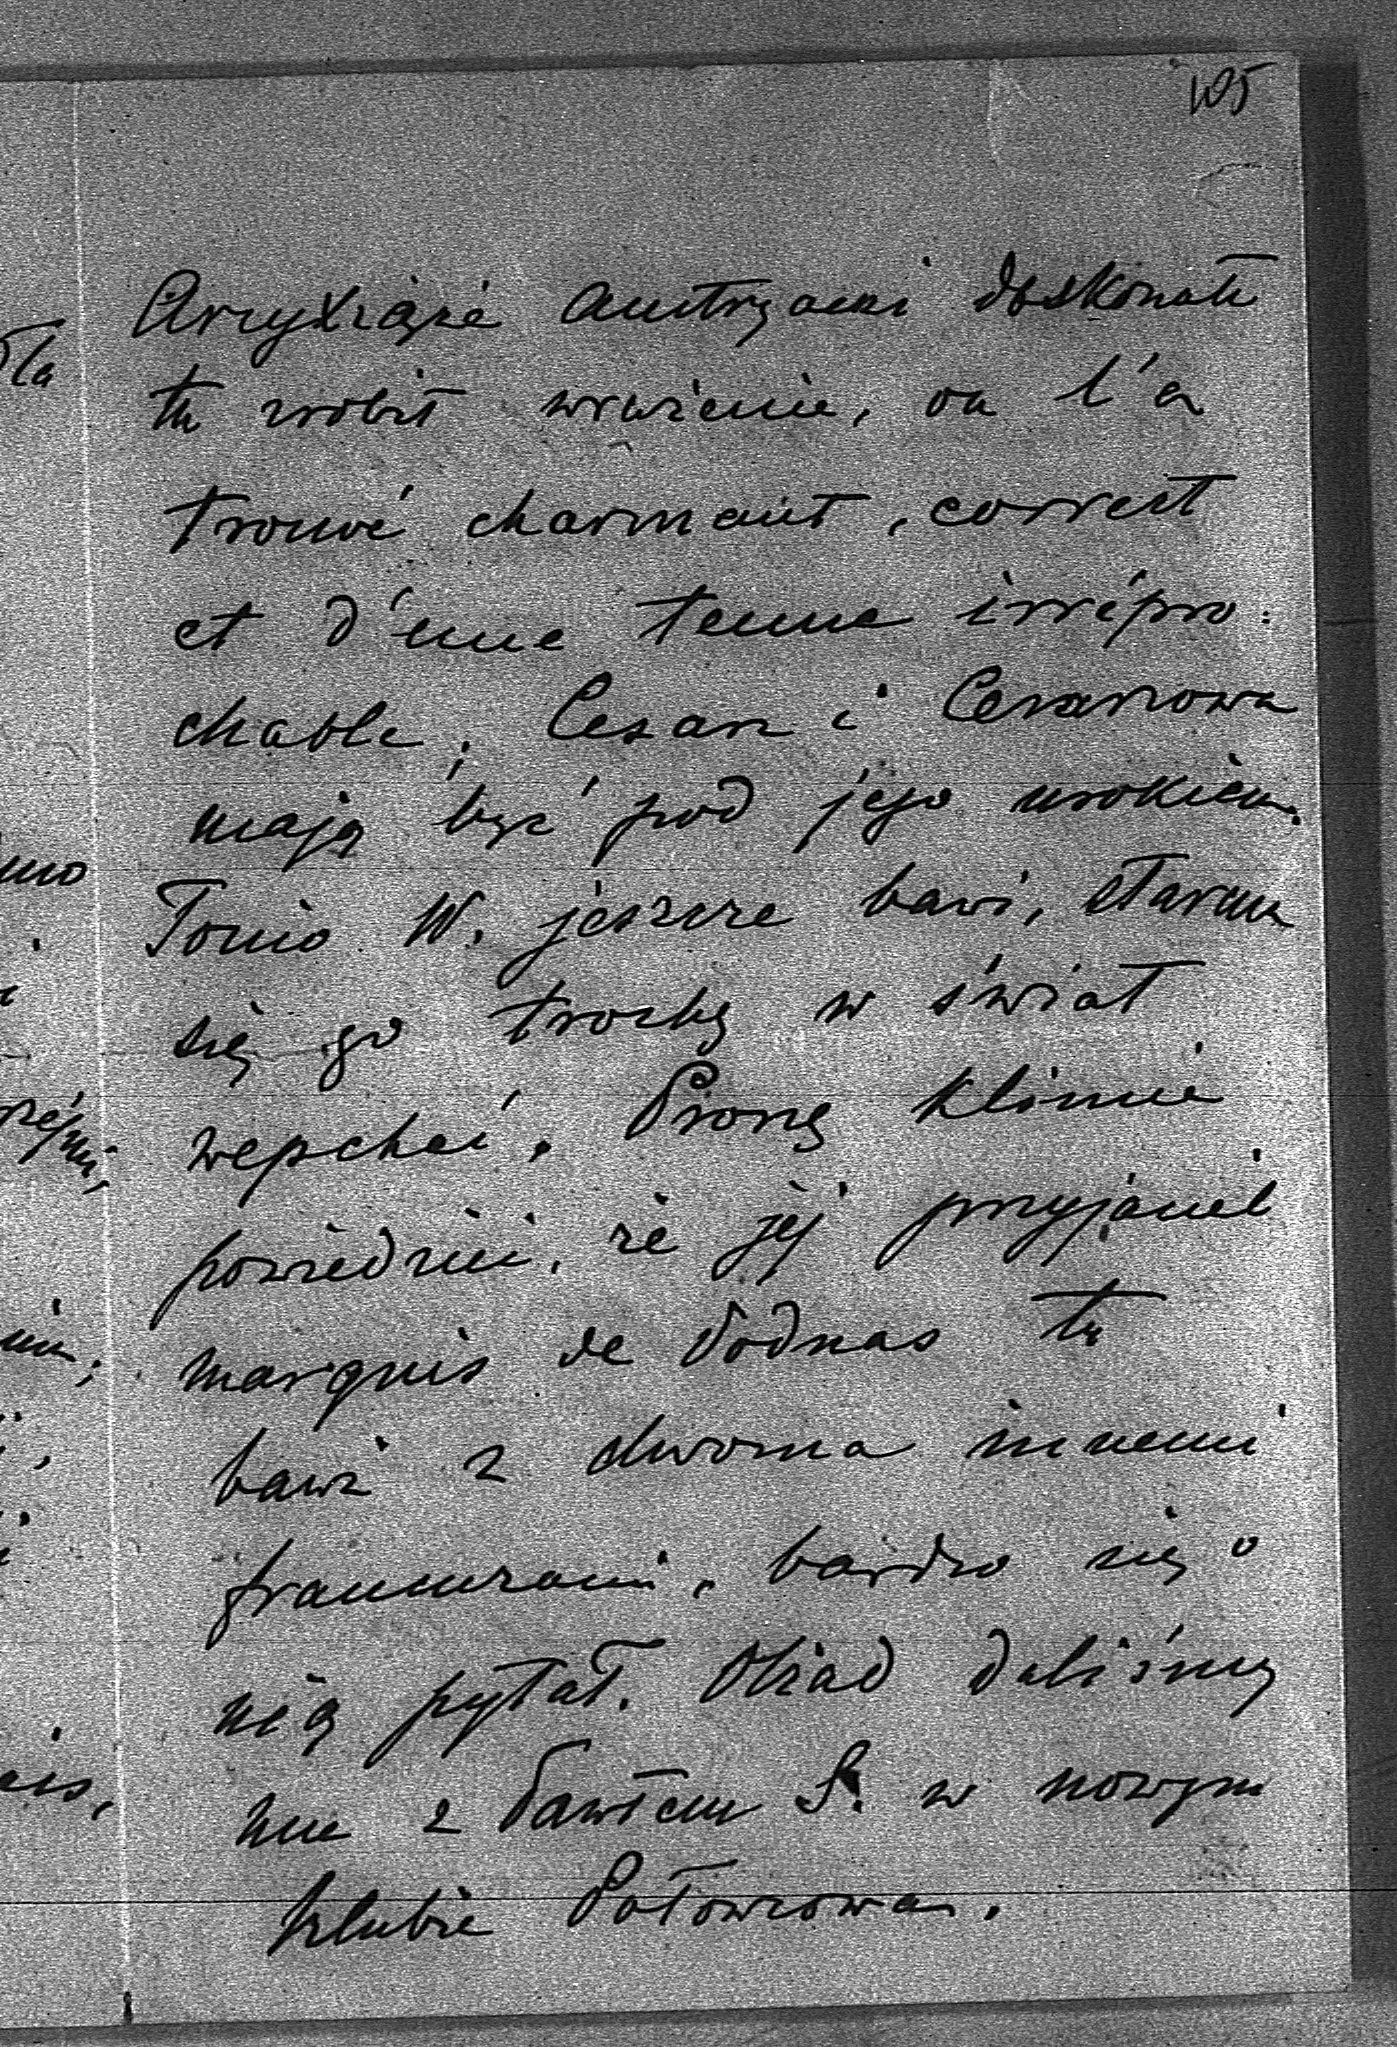 105
Arcyxiąże Austryacki doskonałe
tu zrobił wrażenie, on l'a
trouvé charmant, correct
et d'une tenue irrépro:
chable. Cesarz i Cesarzowa
mają być pod jego urokiem.
Tonio W. jeszcze bawi, staram
się go trochę w świat
wepchać. Proszę Klimci
powiedzieć, że jéj przyjaciel
marquis de tu
bawi z dwoma innemi
francuzami, bardzo się o
nią pytał. Obiad daliśmy
mu z Pawłem S. w nowym
klubie Połowcowa.